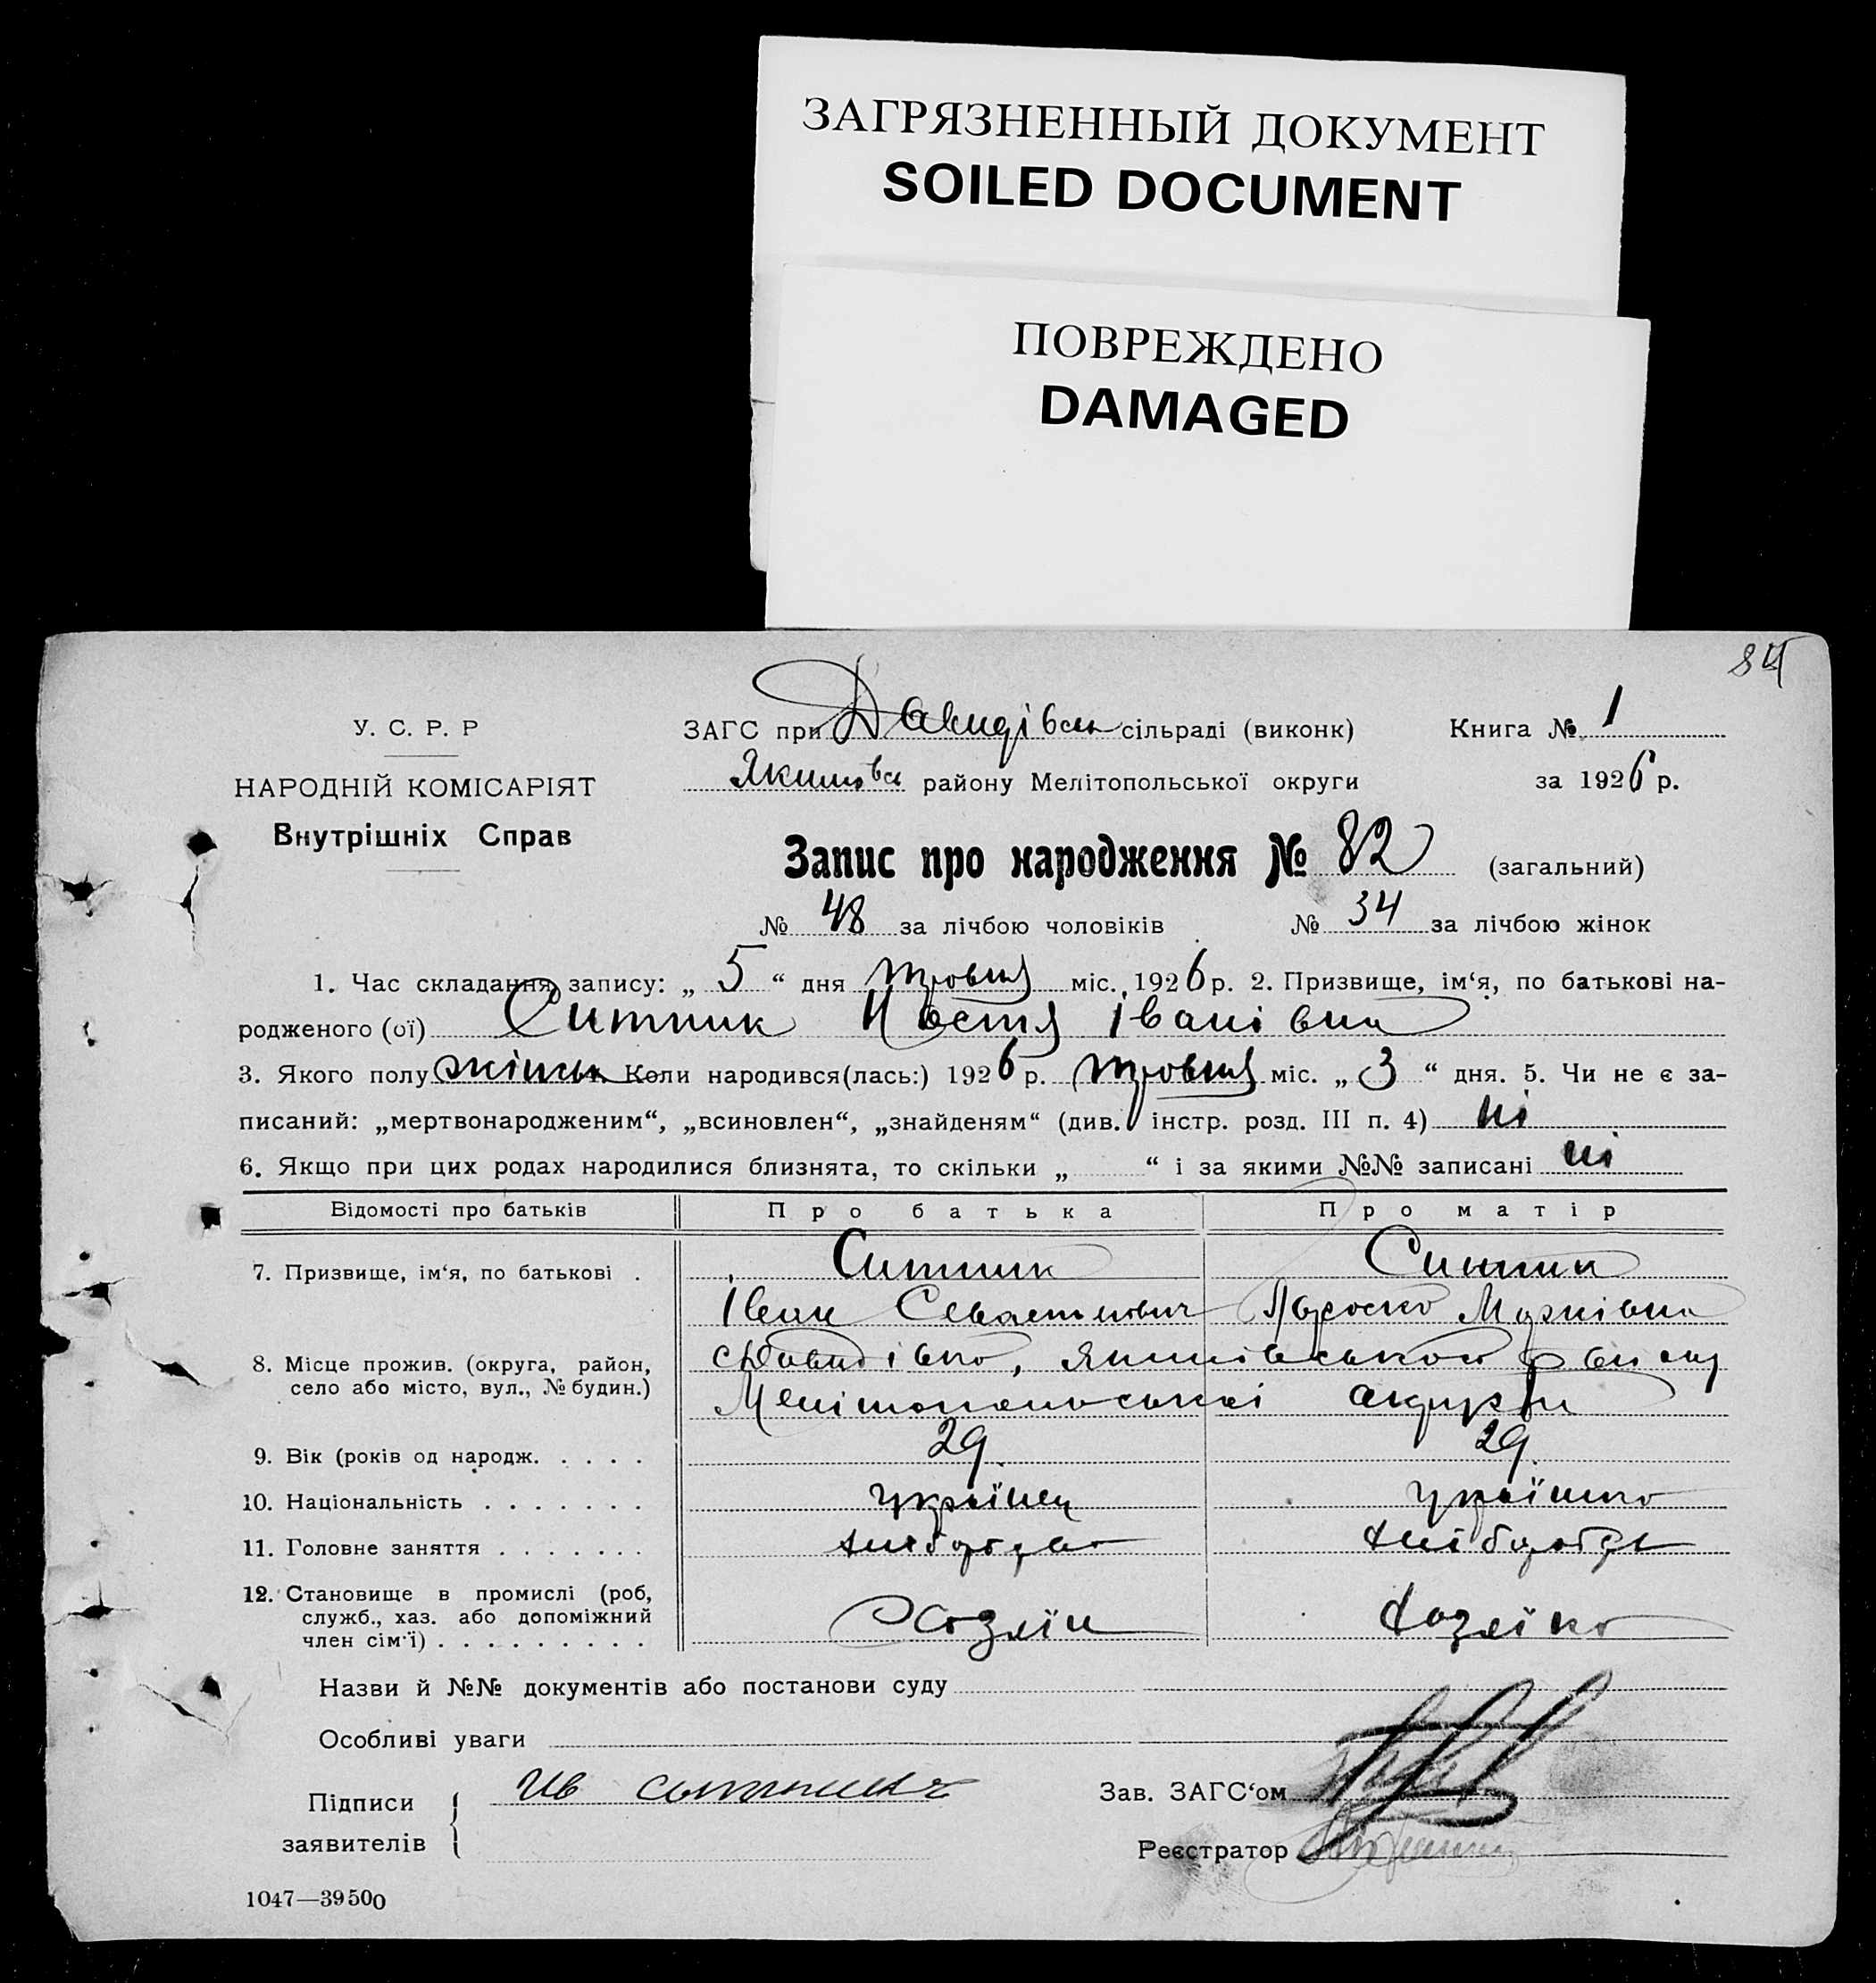 ЗАГРЯЗНЕННЫЙ ДОКУМЕНТ
SOILED DOCUMENT
ПОВРЕЖДЕНО
DAMAGED
У. С. Р. Р
НАРОДНІЙ КОМІСАРІЯТ
Внутрішніх Справ
ЗАГС при Давидівськ сільраді (виконк) Книга № 1
Якимовск району Мелітопольської округи за 1926 р.
Запис про народження № 82 (загальний)
№ 48 за лічбою чоловіків № 34 за лічбою жінок
1. Час складання запису: „ 5 “ дня травня міс. 1926 р. 2. Призвище, ім‘я, по батькові на-
родженого (ої) Ситник Настя Іванівна
3. Якого полу жіноч. Коли народився(лась:) 1926 р. травня міс. „ 3 “ дня. 5. Чи не є за-
писаний: „мертвонародженим“, „всиновлен“, „знайденям“ (див. інстр. розд. III п. 4) ні
6. Якщо при цих родах народилися близнята, то скільки „ “ і за якими №№ записані ні
Відомості про батьків Про батька Про матір
7. Призвище, ім‘я, по батькові . Ситник Ситник
Іван Севастянович Параска Марківна
8. Місце прожив. (округа, район, с Давидівка, Якимівського району
село або місто, вул., № будин.)
Мелітопольської округи
9. Вік (років од народж. . . . . 29 29
10. Національність . . . . . . . українец українка
11. Головне заняття . . . . . . . хлібороб хлібороб
12. Становище в промислі (роб,
служб., хаз. або допоміжний
член сім‘ї) . . . . . . . . . Хозяїн Хозяїка
Назви й №№ документів або постанови суду
Особливі уваги
Підписи Ив Ситник Зав. ЗАГС‘ом
заявителів Реєстратор
1047—39500